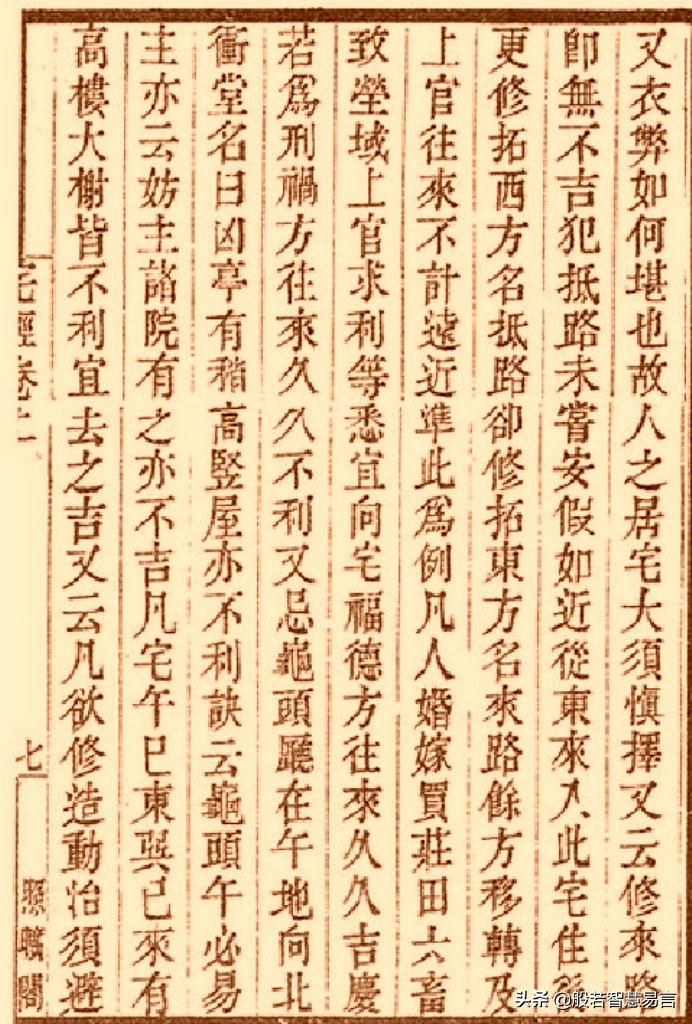 又衣弊如何堪也故人之居宅大須慎擇又云修來路
即無不吉犯抵路未嘗安假如近從東來入此宅住後
更修拓西方名抵路卻修拓東方名來路餘方移轉及
上官往來不計遠近準此為例凡人婚嫁買莊田六畜
致塋域上官求利等悉宜向宅福德方往來久久吉慶
若為刑禍方往來久久不利又忌龜頭廳在午地向北
衝堂名曰凶亭有稍高竪屋亦不利訣云龜頭午必易
主亦云妨主諸院有之亦不吉凡宅午巳東巽巳來有
高樓大榭皆不利宜去之吉又云凡欲修造動治須避
宅經卷上
七
照曠閣
头条 @般若智慧易言